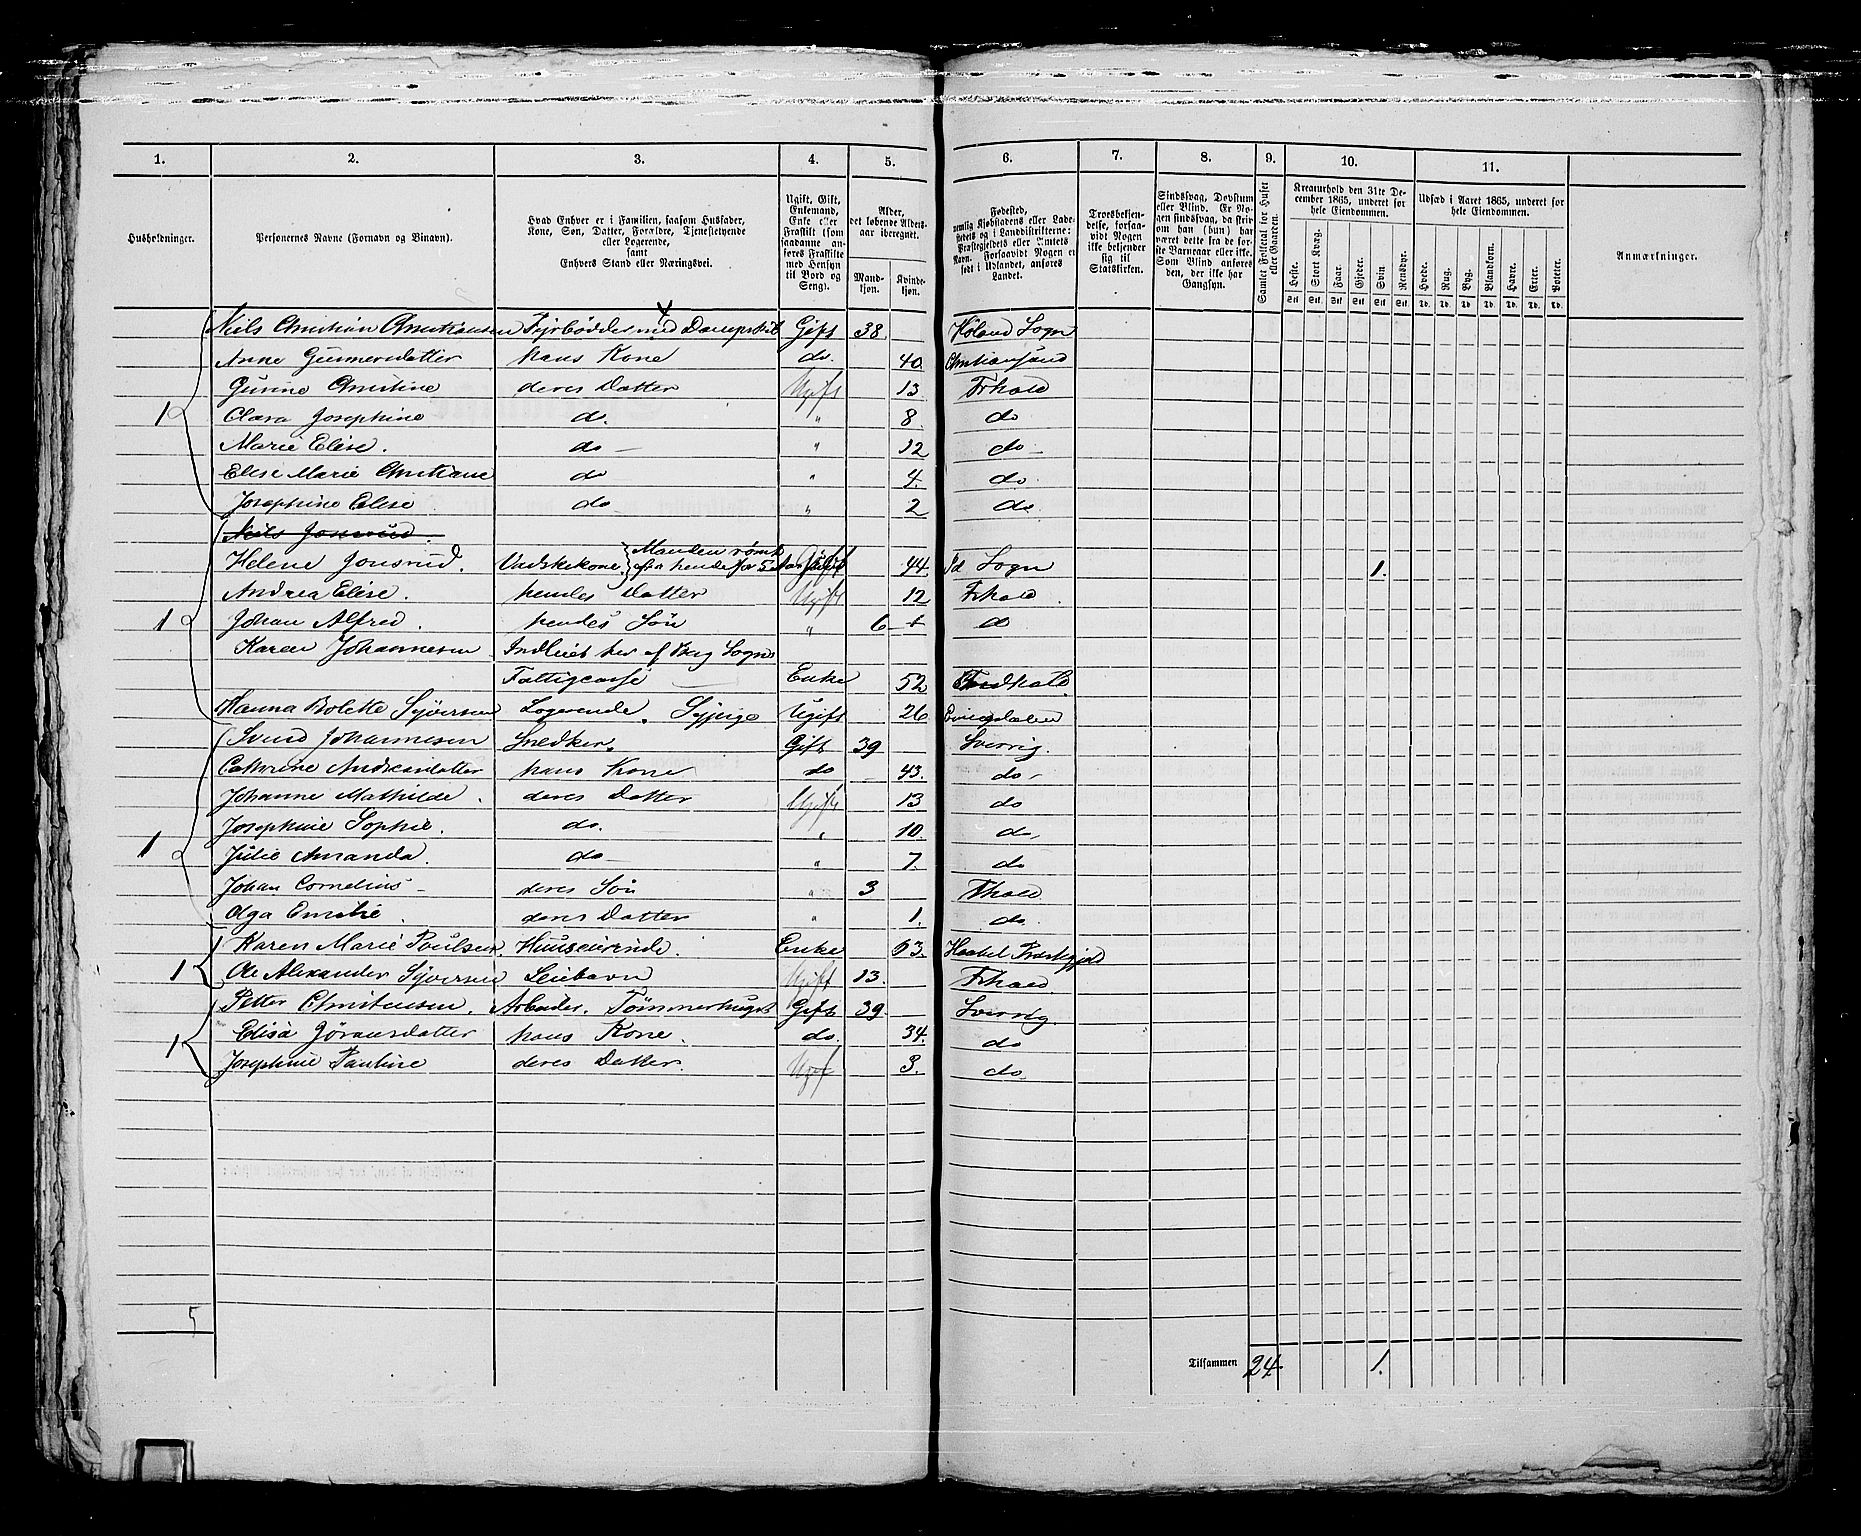 1. 2. 3. 4. 5. 6. 7. 8. 9. 10. 11.
Husholdninger.
Personernes Navne (Fornavn og Binavn).
Hvad Enhver er i Familien, saasom Husfader,
Kone, Søn, Datter, Forældre, Tjenestetyende
eller Logerende,
samt
Enhvers Stand eller Næringsvei.
Ugift, Gift,
Enkemand,
Enke eller
Fraskilt (som
saadanne an-
føres Fraskilte
med Hensyn
til Bord og
Seng).
Alder,
det løbende Alders-
aar iberegnet.
Mand-
kjøn.
Kvinde-
kjøn.
Fødested,
nemlig Kjøbstadens eller Lade-
stedets og i Landdistrikterne:
Præstegjeldets eller Amtets
Navn. Forsaavidt Nogen er
født i Udlandet, anføres
Landet.
Troesbekjen-
delse, forsaa-
vidt Nogen
ikke bekjender
sig til
Statskirken.
Sindssvag, Døvstum
eller Blind. Er No-
gen sindssvag, da skri-
ves om han (hun) har
været dette fra de før-
ste Barneaar eller ikke.
Som Blind anføres
den, der ikke har
Gangsyn.
Samlet Folketal for Huset
eller Gaarden.
Kreaturhold den 31te De-
cember 1865, underet for
hele Eiendommen.
Heste. Stort Kvæg. Faar. Gjeder. Svin. Rensdyr.
Stk. Stk. Stk. Stk. Stk. Stk.
Udsæd i Aaret 1865, underet for
hele Eiendommen.
Hvede. Rug. Byg. Blandkorn. Havre. Erter. Poteter.
Td. Td. Td. Td. Td. Td. Td.
Anmærkninger.
Niels Christian Christiansen Fyrbøder med Dampskib Gift 38 Høland Sogn
Anne Gunnersdatter hans Kone do. 40 Christiansand
Gurine Christine deres Datter Ugift 13 Frhald
1 Clara Josephine do. " 8 do
Marie Elise. do " 12 do
Elise Marie Christiane do " 4 do.
Josephine Elise do " 2 do.
Niels Jonsrud.
Helene Jonsrud. Vadskekone. Manden rømt
fra hende for 5 Aar Gift 44 Id Sogn 1.
Andrea Elise. hendes Datter Ugift 12 Frhald.
1 Johan Alfred. hendes Søn " 6 do
Karen Johannesen Indleiet her af Berg Sogns
Fattigcasse Enke 52
Hanna Bolette Syversen Logerende. Sypige Ugift 26
Svend Johannesen Snedker. Gift 39 Sverrig.
Cathrine Andreasdatter hans Kone do 43. do
Johanne Mathilde. deres Datter Ugift 13 do
Josephine Sophie. do. " 10. do,
1 Julie Amanda. do " 7. do
Johan Cornelius deres Søn " 3 Frhald
Olga Emilie. deres Datter " 1. do.
Karen Marie Poulsen. Huuseierinde. Enke 63.
1 Ole Alexander Syversen Leiebarn Ugift 13. Frhald.
Petter Christensen. Arbeider. Tømmerhugst Gift 39. Sverrig.
Elisa Jøransdatter hans Kone. do. 34. do
1 Josephine Pauline deres Datter. Ugif 3. do
5
Tilsammen 24 1.